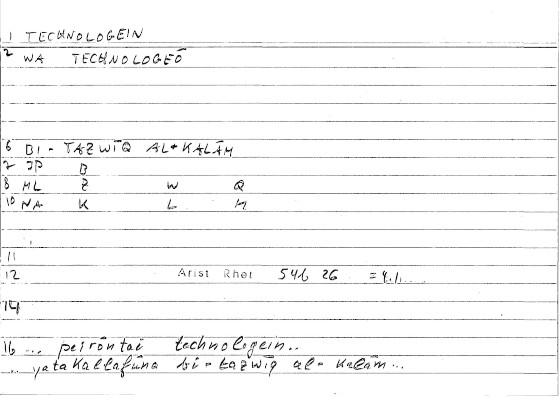 1 TECHNOLOGEIN
2 WA TECHNOLOGEŌ
6 BI - TAZWĪQ AL-KALĀM
7 JP B
8 ML Z W Q
10 NA K L M
11
12 Arist Rhet 54b 26 =
14
16 ... peirōntai technologein..
.. yatakallafūna bi-tazwīq al-kalām...